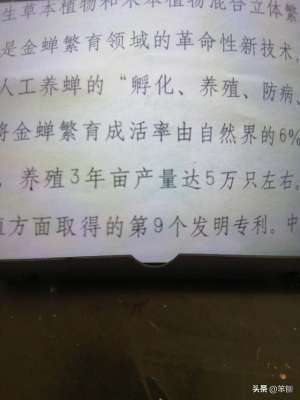 生草本植物和木本植物混合立体繁
是金蝉繁育领域的革命性新技术,
人工养蝉的“孵化、养殖、防病、
将金蝉繁育成活率由自然界的6%
，养殖3年亩产量达5万只左右。
直方面取得的第9个发明专利。中
头条@笨刨